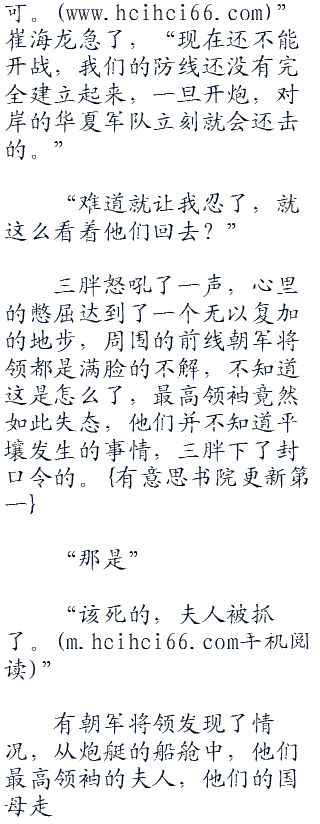 可。(www.hcihci66.com)”
崔海龙急了，“现在还不能
开战，我们的防线还没有完
全建立起来，一旦开炮，对
岸的华夏军队立刻就会还击
的。”
“难道就让我忍了，就
这么看着他们回去？”
三胖怒吼了一声，心里
的憋屈达到了一个无以复加
的地步，周围的前线朝军将
领都是满脸的不解，不知道
这是怎么了，最高领袖竟然
如此失态，他们并不知道平
壤发生的事情，三胖下了封
口令的。{有意思书院更新第
一}
“那是”
“该死的，夫人被抓
了。(m.hcihci66.com手机阅
读)”
有朝军将领发现了情
况，从炮艇的船舱中，他们
最高领袖的夫人，他们的国
母走